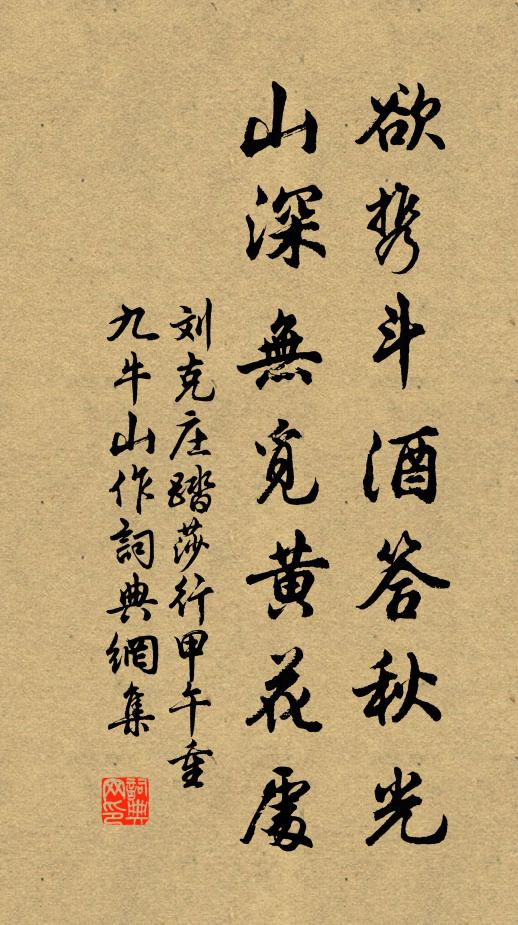 欲携斗酒答秋光
山深無覓黄花處
刘克庄踏莎行甲午重
九牛山作詞典網集
詞典
网印